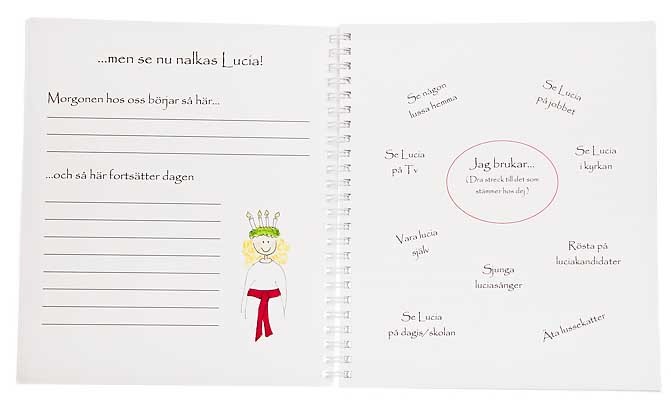 ...men se nu nalkas Lucia!
Morgonen hos oss börjar så här...
...och så här fortsätter dagen
Se någon
lussa hemma
Se Lucia
på jobbet
Se Lucia
på Tv
Jag brukar...
(Dra streck till det som
stämmer hos dej)
Se Lucia
i kyrkan
Vara lucia
själv
Rösta på
luciakandidater
Sjunga
luciasånger
Se Lucia
på dagis/skolan
Äta lussekatter